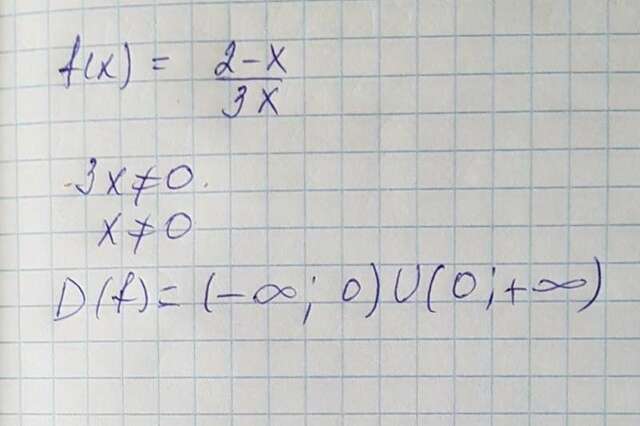 f(x) = (2-x)/(3x)
3x≠0.
x≠0
D(f)=(-∞; 0)U(0;+∞)